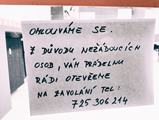 OMLOUVÁME SE.
Z DŮVODU NEŽÁDOUCÍCH
OSOB, VÁM PRÁDELNU
RÁDI OTEVŘEME
NA ZAVOLÁNÍ TEL:
725 306 214